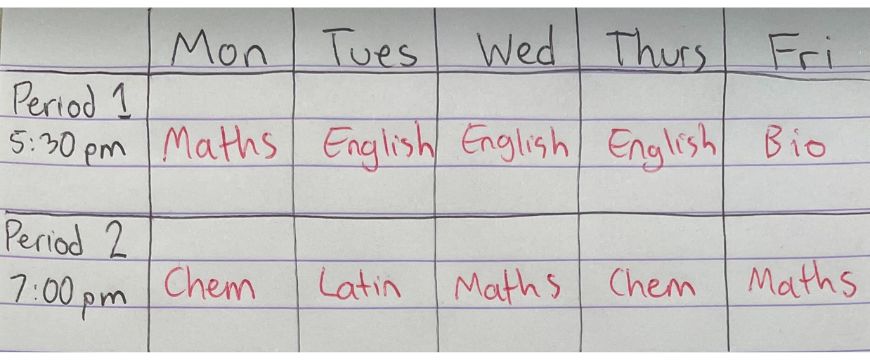 Mon Tues Wed Thurs Fri
Period 1
5:30 pm Maths English English English Bio
Period 2
7:00 pm Chem Latin Maths Chem Maths